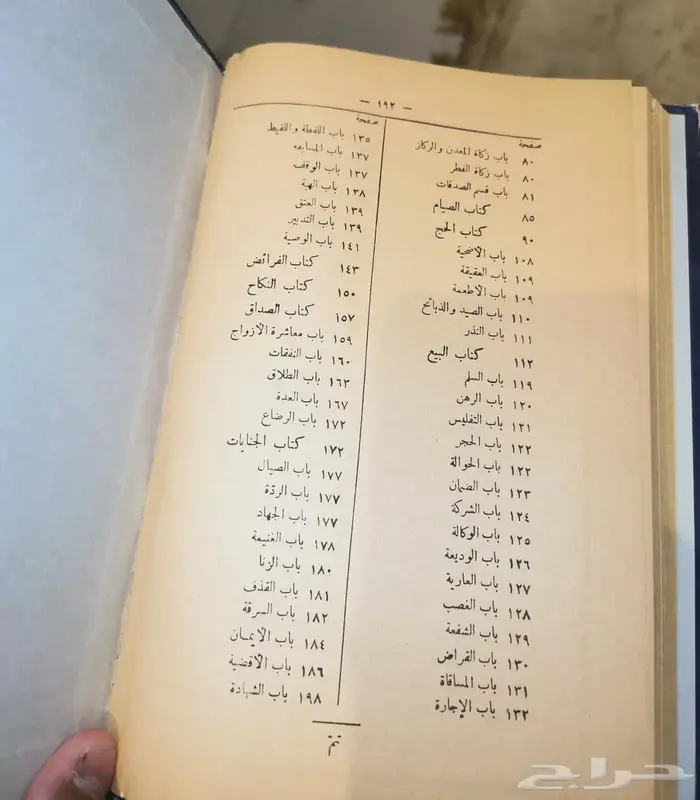 — ١٩٢ —
صفحة
٨٠ باب زكاة المعدن والركاز
٨٠ باب زكاة الفطر
٨١ باب قسم الصدقات
٨٥ كتاب الصيام
٩٠ كتاب الحج
١٠٨ باب الأضحية
١٠٩ باب العقيقة
١٠٩ باب الأطعمة
١١٠ باب الصيد والذبائح
١١١ باب النذر
١١٢ كتاب البيع
١١٩ باب السلم
١٢٠ باب الرهن
١٢١ باب التفليس
١٢٢ باب الحجر
١٢٢ باب الحوالة
١٢٣ باب الضمان
١٢٤ باب الشركة
١٢٥ باب الوكالة
١٢٦ باب الوديعة
١٢٧ باب العارية
١٢٨ باب الغصب
١٢٩ باب الشفعة
١٣٠ باب القراض
١٣١ باب المساقاة
١٣٢ باب الإجارة
صفحة
١٣٥ باب اللقطة واللقيط
١٣٧ باب المسابقه
١٣٧ باب الوقف
١٣٨ باب الهبة
١٣٩ باب العتق
١٣٩ باب التدبير
١٤١ باب الوصية
١٤٣ كتاب الفرائض
١٥٠ كتاب النكاح
١٥٧ كتاب الصداق
١٥٩ باب معاشرة الأزواج
١٦٠ باب النفقات
١٦٣ باب الطلاق
١٦٧ باب العدة
١٧٢ باب الرضاع
١٧٢ كتاب الجنايات
١٧٧ باب الصيال
١٧٧ باب الردّة
١٧٧ باب الجهاد
١٧٨ باب الغنيمة
١٨٠ باب الزنا
١٨١ باب القذف
١٨٢ باب السرقة
١٨٤ باب الأيمان
١٨٦ باب الأقضية
١٩٨ باب الشهادة
تمّ
حراج